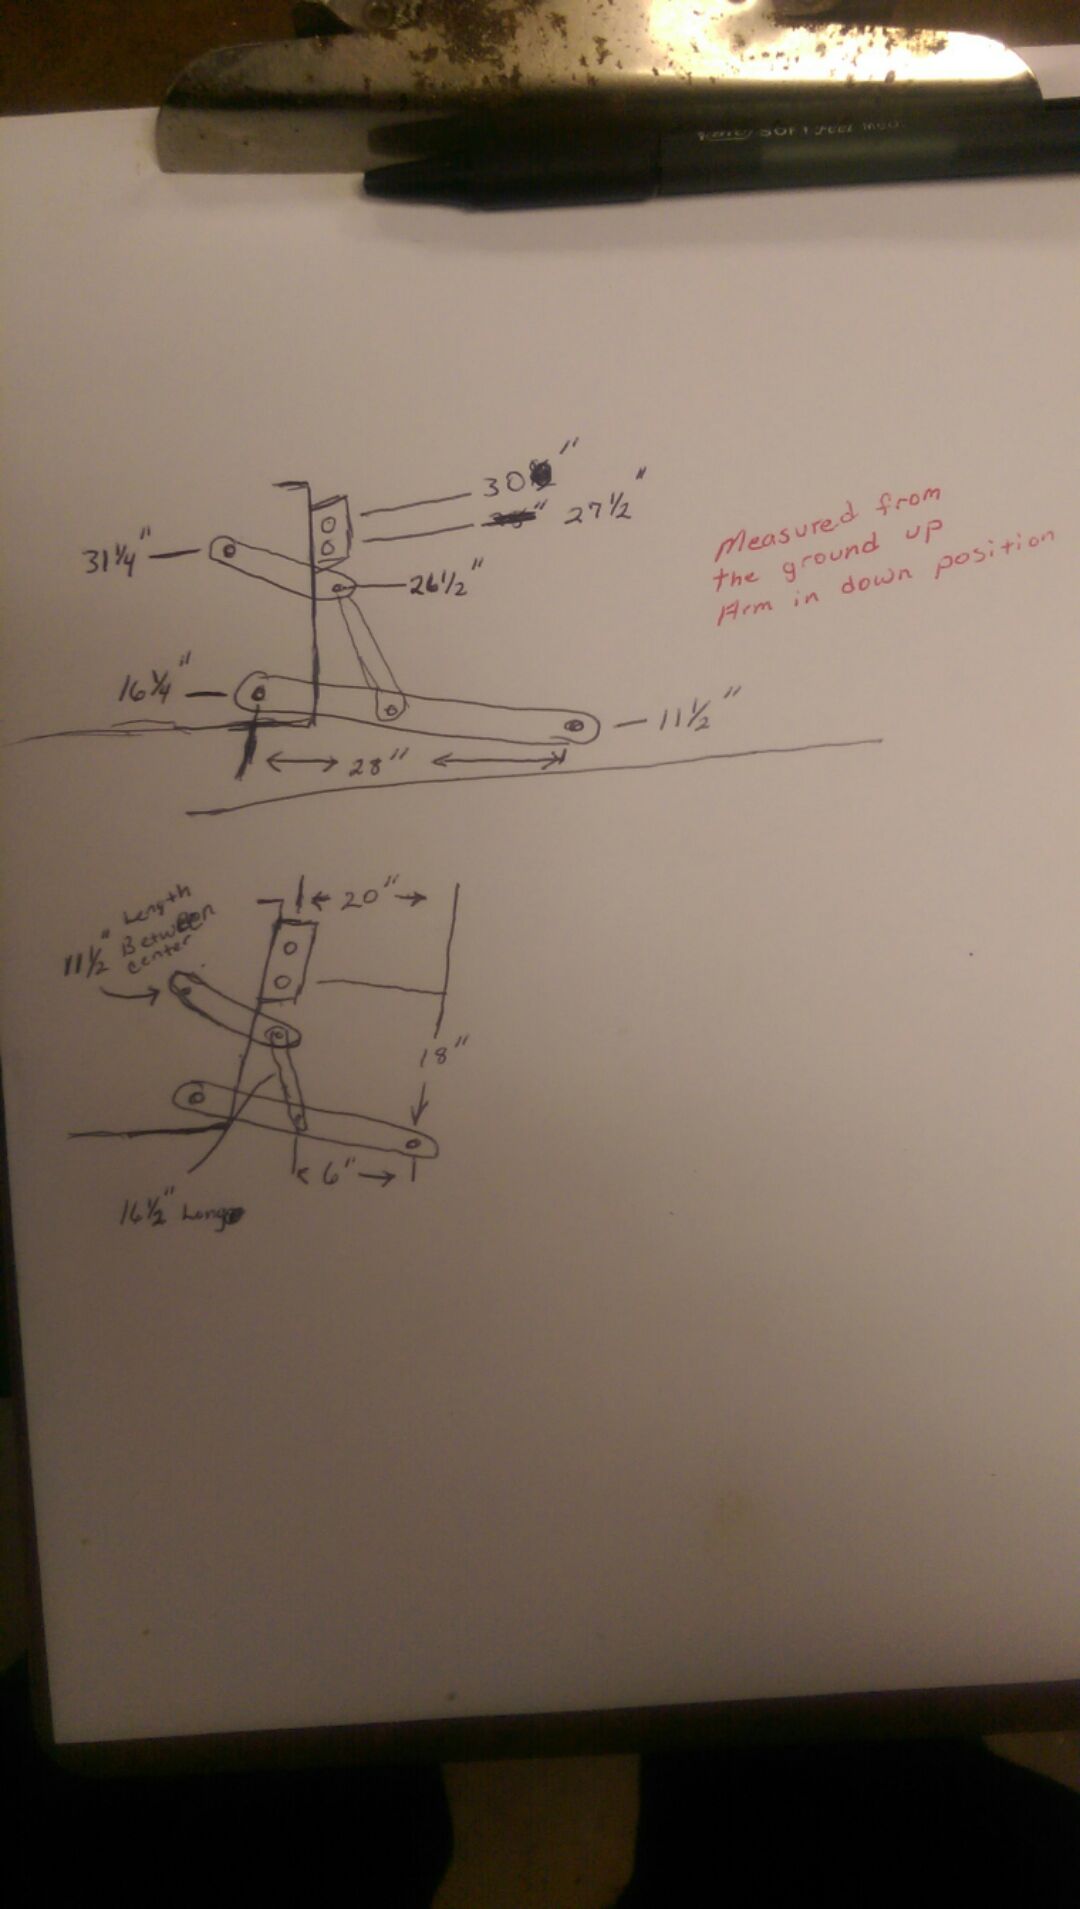 SOFT Feel
30"
27 1/2"
31 1/4"
26 1/2"
Measured from
the ground up
Arm in down position
16 1/4"
11 1/2"
28"
20"
11 1/2" Length
Between
center
18"
6"
16 1/2" Long